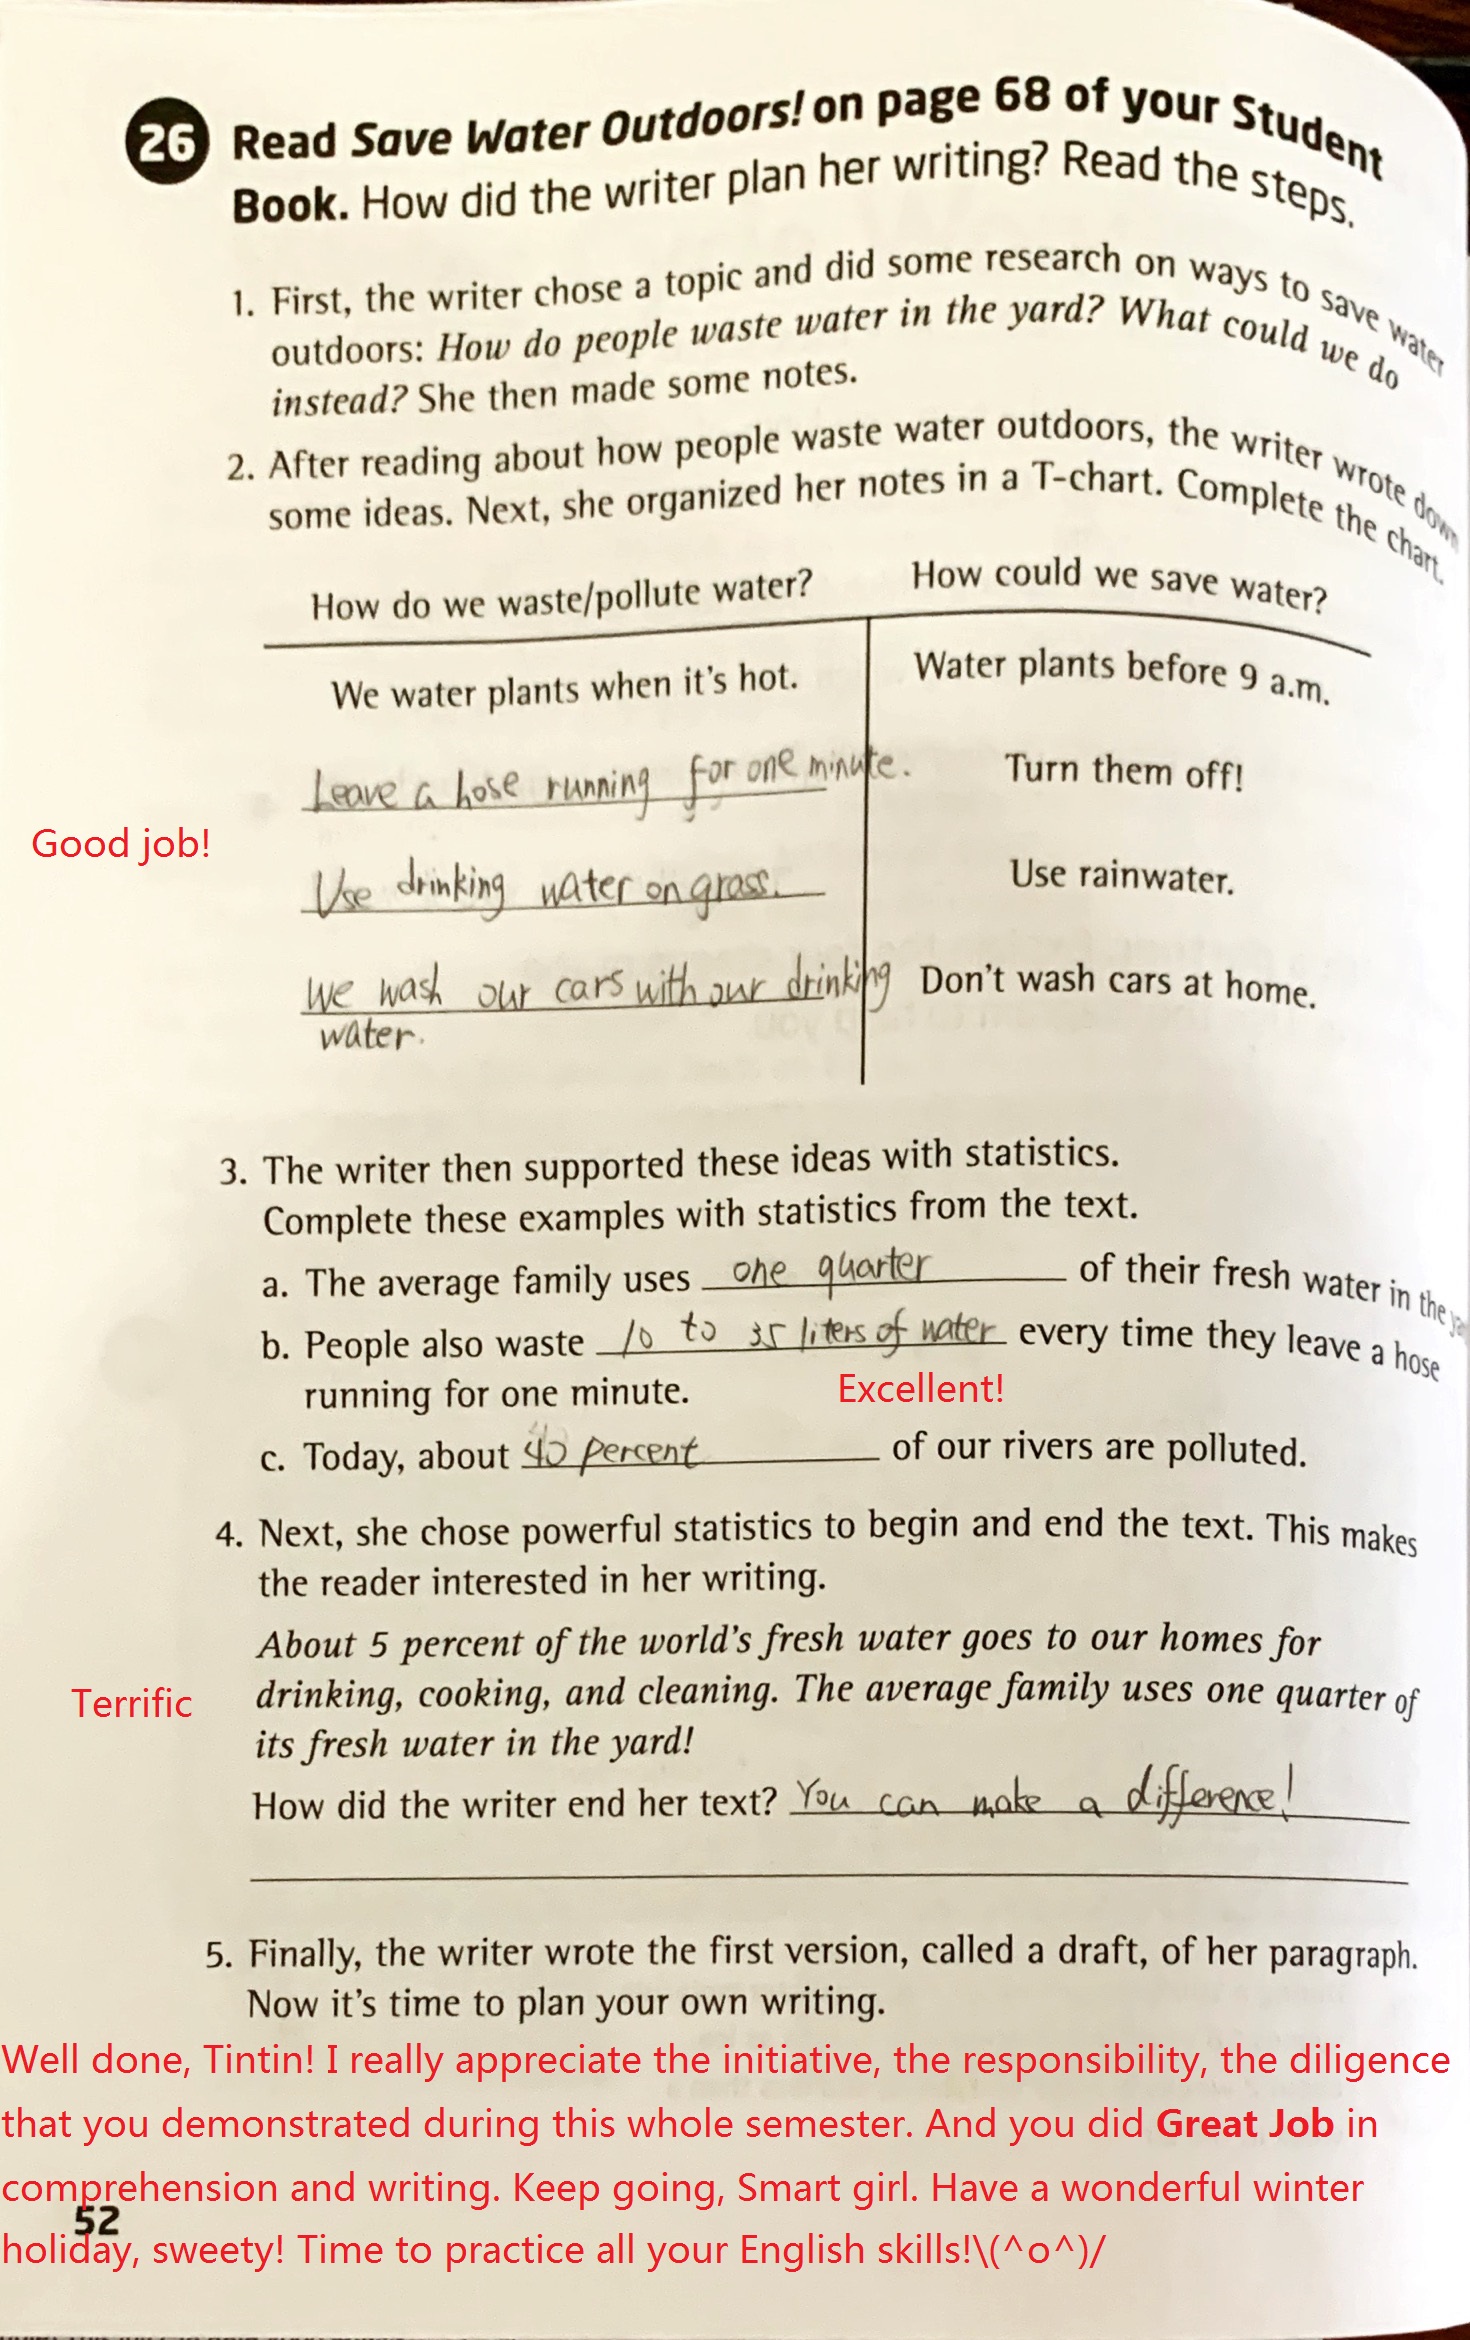 26 Read Save Water Outdoors! on page 68 of your Student
Book. How did the writer plan her writing? Read the steps.
1. First, the writer chose a topic and did some research on ways to save water
outdoors: How do people waste water in the yard? What could we do
instead? She then made some notes.
2. After reading about how people waste water outdoors, the writer wrote down
some ideas. Next, she organized her notes in a T-chart. Complete the chart.
How do we waste/pollute water? How could we save water?
We water plants when it's hot. Water plants before 9 a.m.
Leave a hose running for one minute. Turn them off!
Good job!
Use drinking water on grass. Use rainwater.
We wash our cars with our drinking Don't wash cars at home.
water.
3. The writer then supported these ideas with statistics.
Complete these examples with statistics from the text.
a. The average family uses one quarter of their fresh water in the
b. People also waste 10 to 35 liters of water every time they leave a hose
running for one minute. Excellent!
c. Today, about 40 percent of our rivers are polluted.
4. Next, she chose powerful statistics to begin and end the text. This makes
the reader interested in her writing.
About 5 percent of the world's fresh water goes to our homes for
Terrific drinking, cooking, and cleaning. The average family uses one quarter of
its fresh water in the yard!
How did the writer end her text? You can make a difference!
5. Finally, the writer wrote the first version, called a draft, of her paragraph.
Now it's time to plan your own writing.
Well done, Tintin! I really appreciate the initiative, the responsibility, the diligence
that you demonstrated during this whole semester. And you did Great Job in
comprehension and writing. Keep going, Smart girl. Have a wonderful winter
52
holiday, sweety! Time to practice all your English skills!\(^o^)/